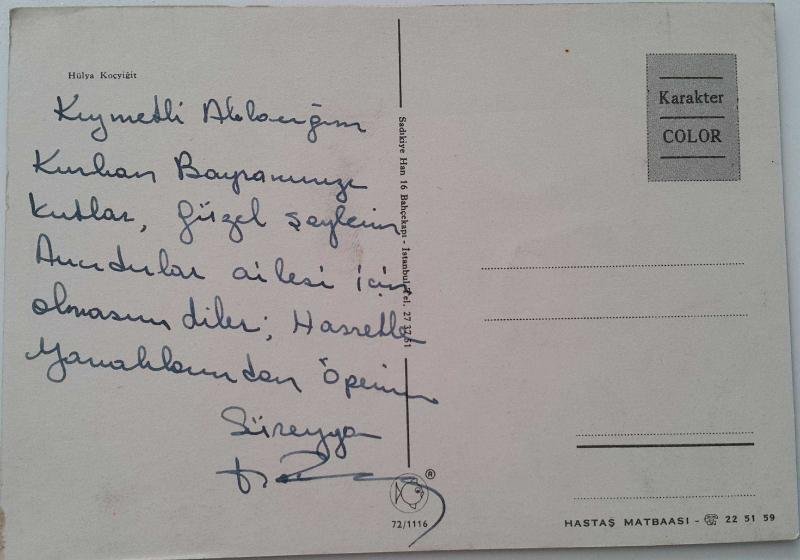 Hülya Koçyiğit
Kıymetli Ablacığım
Kurban Bayramınızı
kutlar, güzel şeylerin
ailesi için
olmasını diler; Hasretle
Yanaklarından öperim
Süreyya
Sadıkiye Han 16 Bahçekapı - İstanbul Tel. 27 37 61
Karakter
COLOR
®
72/1116
HASTAŞ MATBAASI - ☏ 22 51 59